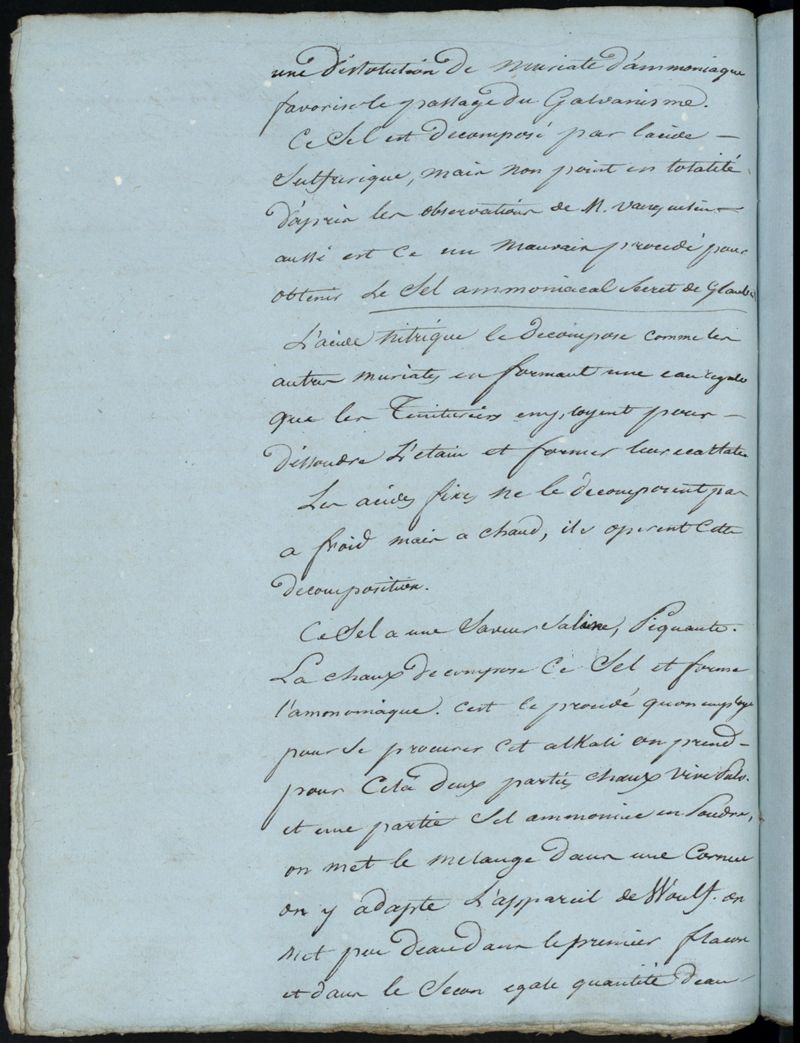 une dissolution de muriate d'ammoniaque
favorise le passage du Galvanisme.
Ce Sel est decomposé par lacide –
Sulfurique, mais non point en totalité
d'après les observations de M. vauquelin –
aussi est Ce un mauvais procedé pour
obtenir Le Sel ammoniacal Secret de Glauber
L'acide nitrique le decompose comme les
autres muriates en formant une eau regale
que les Teinturiers employent pour –
dissoudre L'etain et former leur ecarlate
Les acides fixes ne le decomposent pas
a froid mais a chaud, ils operent Cette
decomposition.
Ce Sel a une Saveur Saline, Piquante.
La chaux decompose Ce Sel et forme
l'amonomiaque. cest le procedé qu'on employe
pour Se procurer Cet alkali on prend –
pour Cela deux parties chaux vive Pulv.
et une partie Sel ammoniac en Poudre,
on met le melange dans une Cornue
on y adapte L'appareil de Woulf. on
met peu deau dans le premier flacon
et dans le Secon egale quantité deau